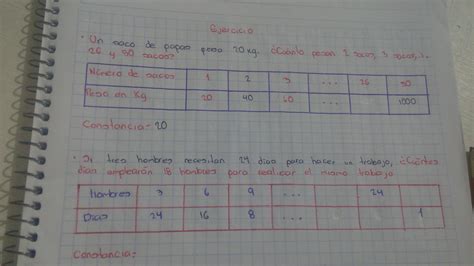 Ejercicio
• Un saco de papas pesa 20 kg. ¿Cuánto pesan 2 sacos, 3 sacos, ...
26 y 50 sacos?
Número de sacos 1 2 3 ... 26 50
Peso en Kg 20 40 60 ... 1000
Constancia= 20
• Si tres hombres necesitan 24 dias para hacer un trabajo, ¿Cuántos
dias emplearán 18 hombres para realizar el mismo trabajo
Hombres 3 6 9 ... 24
Dias 24 16 8 ... 1
Constancia: